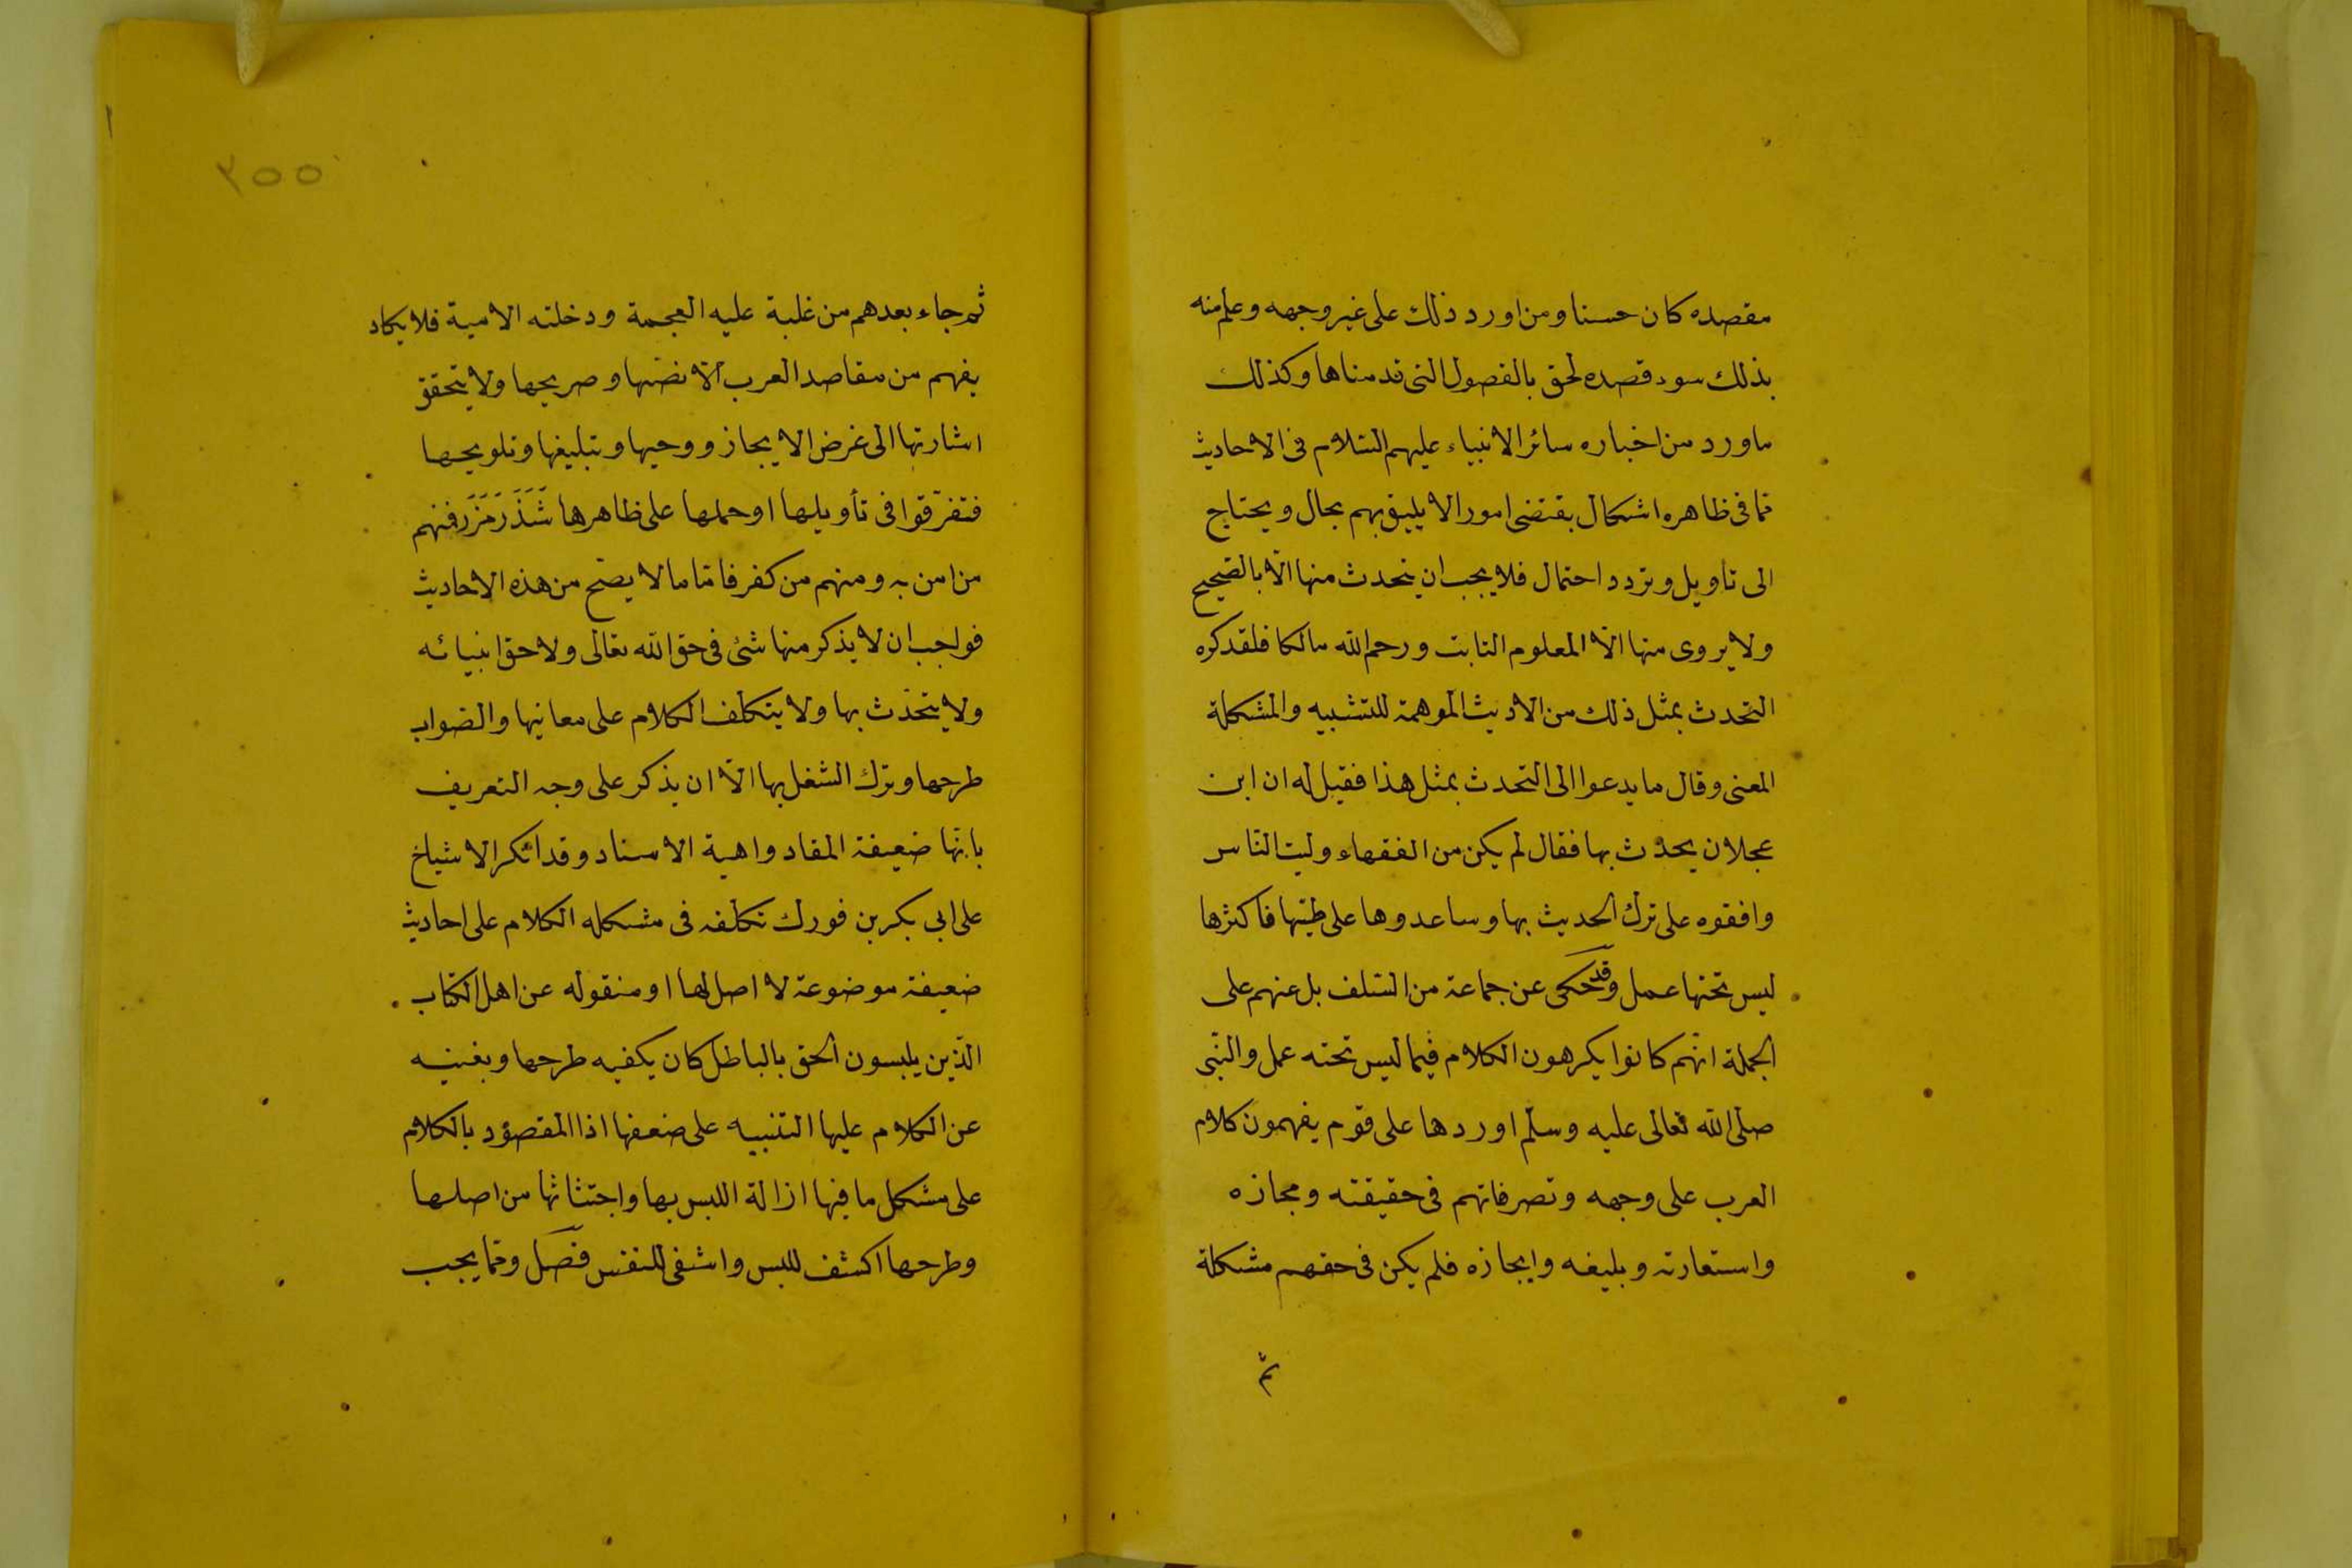 مقصده كان حسنا ومن اورد ذلك على غير وجهه وعلم منه
بذلك سوء قصده لحق بالفصول التى قدمناها وكذلك
ماورد من اخباره سائر الانبياء عليهم السّلام فى الاحاديث
ممّا فى ظاهره اشكال يقتضى امور الا يليق بهم بحال ويحتاج
الى تأويل وتردد احتمال فلا يجب ان يتحدث منها الّا بالصّحيح
ولا يروى منها الّا المعلوم الثابت ورحم الله مالكا فلقد كره
التحدث بمثل ذلك من الاديث الموهمة للتشبيه والمشكلة
المعنى وقال ما يدعوا الى التحدث بمثل هذا فقيل له ان ابن
عجلان يحدث بها فقال لم يكن من الفقهاء وليت النّاس
وافقوه على ترك الحديث بها وساعدوها على طيّها فأكثرها
ليس تحتها عمل وقد حكى عن جماعة من السّلف بل عنهم على
الجملة انّهم كانوا يكرهون الكلام فيما ليس تحته عمل والنّبى
صلى الله تعالى عليه وسلّم اوردها على قوم يفهمون كلام
العرب على وجهه وتصرفاتهم فى حقيقته ومجازه
واستعارته وبليغه وايجازه فلم يكن فى حقهم مشكلة
ثمّ
٢٥٥
ثم جاء بعدهم من غلبة عليه العجمة ودخلته الامية فلا يكاد
يفهم من مقاصد العرب الّا نصّها وصريحها ولا يتحقق
اشارتها الى غرض الايجاز ووحيها وتبليغها وتلويحها
فتفرّقوا فى تأويلها او حملها على ظاهرها شَذَرَ مَزَرَ فمنهم
من امن به ومنهم من كفر فامّا ما لا يصّح من هذه الاحاديث
فواجب ان لا يذكر منها شئ فى حق الله تعالى ولا حق انبيائه
ولا يتحدّث بها ولا يتكلّف الكلام على معانيها والصّواب
طرحها وترك الشغل بها الّا ان يذكر على وجه التعريف
بانّها ضعيفة المقاد واهية الاسناد وقد انكر الاشياخ
على ابى بكر بن فورك تكلّفه فى مشكله الكلام على احاديث
ضعيفة موضوعة لا اصل لها او منقوله عن اهل الكتاب
الّذين يلبسون الحق بالباطل كان يكفيه طرحها ويغنيه
عن الكلام عليها التنبيه على ضعفها اذا المقصود بالكلام
على مشكل ما فيها ازالة اللبس بها واجتثاثها من اصلها
وطرحها اكشف للبس واشفى للنفس فصل وممّا يجب